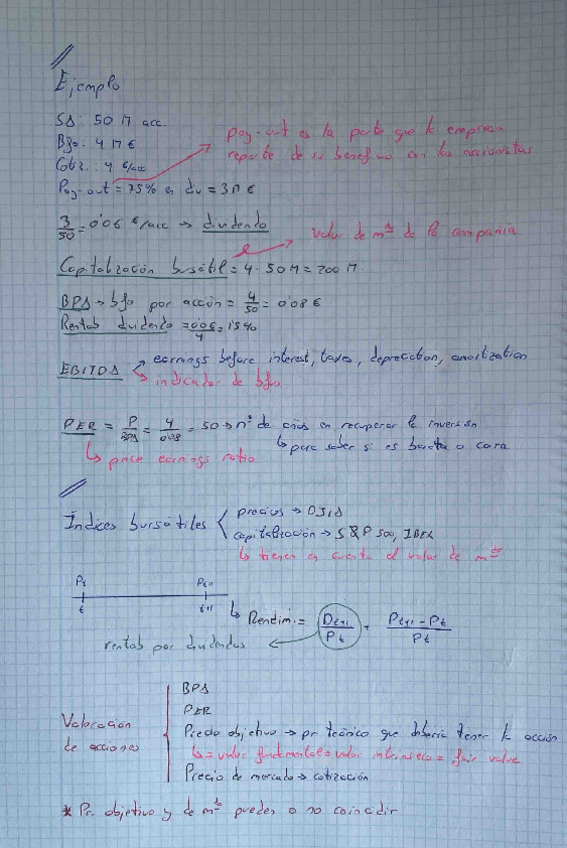 Ejemplo
SA: 50 M acc.
Bfo: 4 M €
Cotiz.: 4 €/acc
Pay-out = 75% en div = 3 M €
pay-out es la parte que la empresa
reparte de su beneficio con los accionistas
3/50 = 0'06 €/acc → dividendo
valor de mdo de la compañía
Capitalización bursátil = 4 · 50 M = 200 M
BPA → bfo por acción = 4/50 = 0'08 €
Rentab dividendo = 0'06/4 = 1'5%
EBITDA
earnings before interest, taxes, depreciation, amortization
indicador de bfo
PER = P/BPA = 4/0'08 = 50 → nº de años en recuperar la inversión
↳ para saber si es barata o cara
↳ price earnings ratio
Índices bursátiles
precios → DJIA
capitalización → S&P 500, IBEX
↳ tienen en cuenta el valor de mdo
Pt Pt+1
t t+1
↳ Rendim. = Dt+1/Pt + Pt+1 - Pt/Pt
rentab por dividendos
Valoración de acciones
BPA
PER
Precio objetivo → pr teórico que debería tener la acción
↳ = valor fundamental = valor intrínseco = fair value
Precio de mercado → cotización
* Pr. objetivo y de mdo pueden o no coincidir